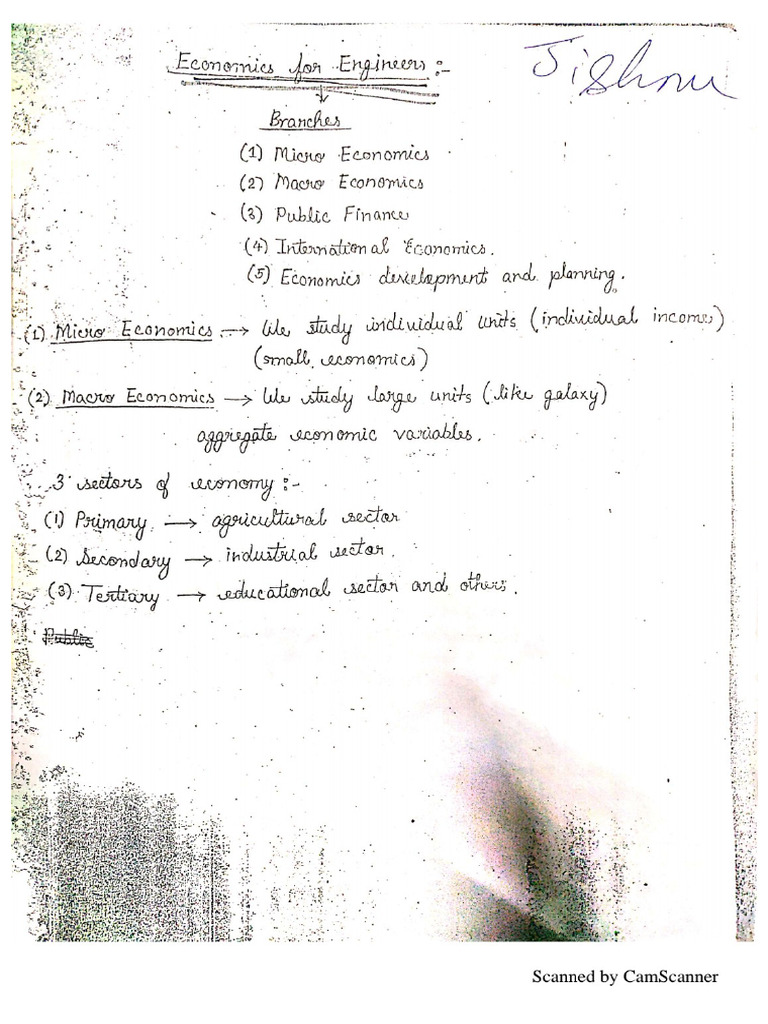 Economics for Engineers :-
Jishnu
Branches
(1) Micro Economics
(2) Macro Economics
(3) Public Finance
(4) International Economics.
(5) Economics development and planning.
(1) Micro Economics → We study individual units (individual income)
(small economics)
(2) Macro Economics → We study large units (like galaxy)
aggregate economic variables.
3 sectors of economy :-
(1) Primary → agricultural sector
(2) Secondary → industrial sector.
(3) Tertiary → educational sector and others.
Public
Scanned by CamScanner